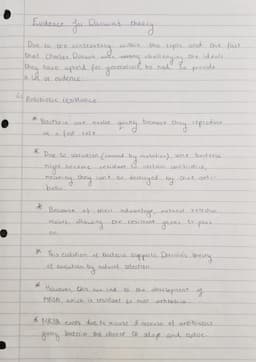 Evidence for Darwin's theory
Due to the controversy within this topic and the fact
that Charles Darwin was challenging the ideas
they have upheld for generations, he had to provide
a lot of evidence
Antibiotic resistance
* Bacteria can evolve quickly because they reproduce
at a fast rate
* Due to variation (caused by mutation), some bacteria
might become resistant to certain antibiotics,
meaning they can't be destroyed by that anti-
biotic
* Because of their advantage, natural selection
occurs, allowing the resistant genes to pass
on.
* This evolution of bacteria supports Darwin's theory
of evolution by natural selection
* However, this has led to the development of
MRSA, which is resistant to most antibiotics
* MRSA exists due to misuse & overuse of antibiotics
giving bacteria the chance to adapt and evolve